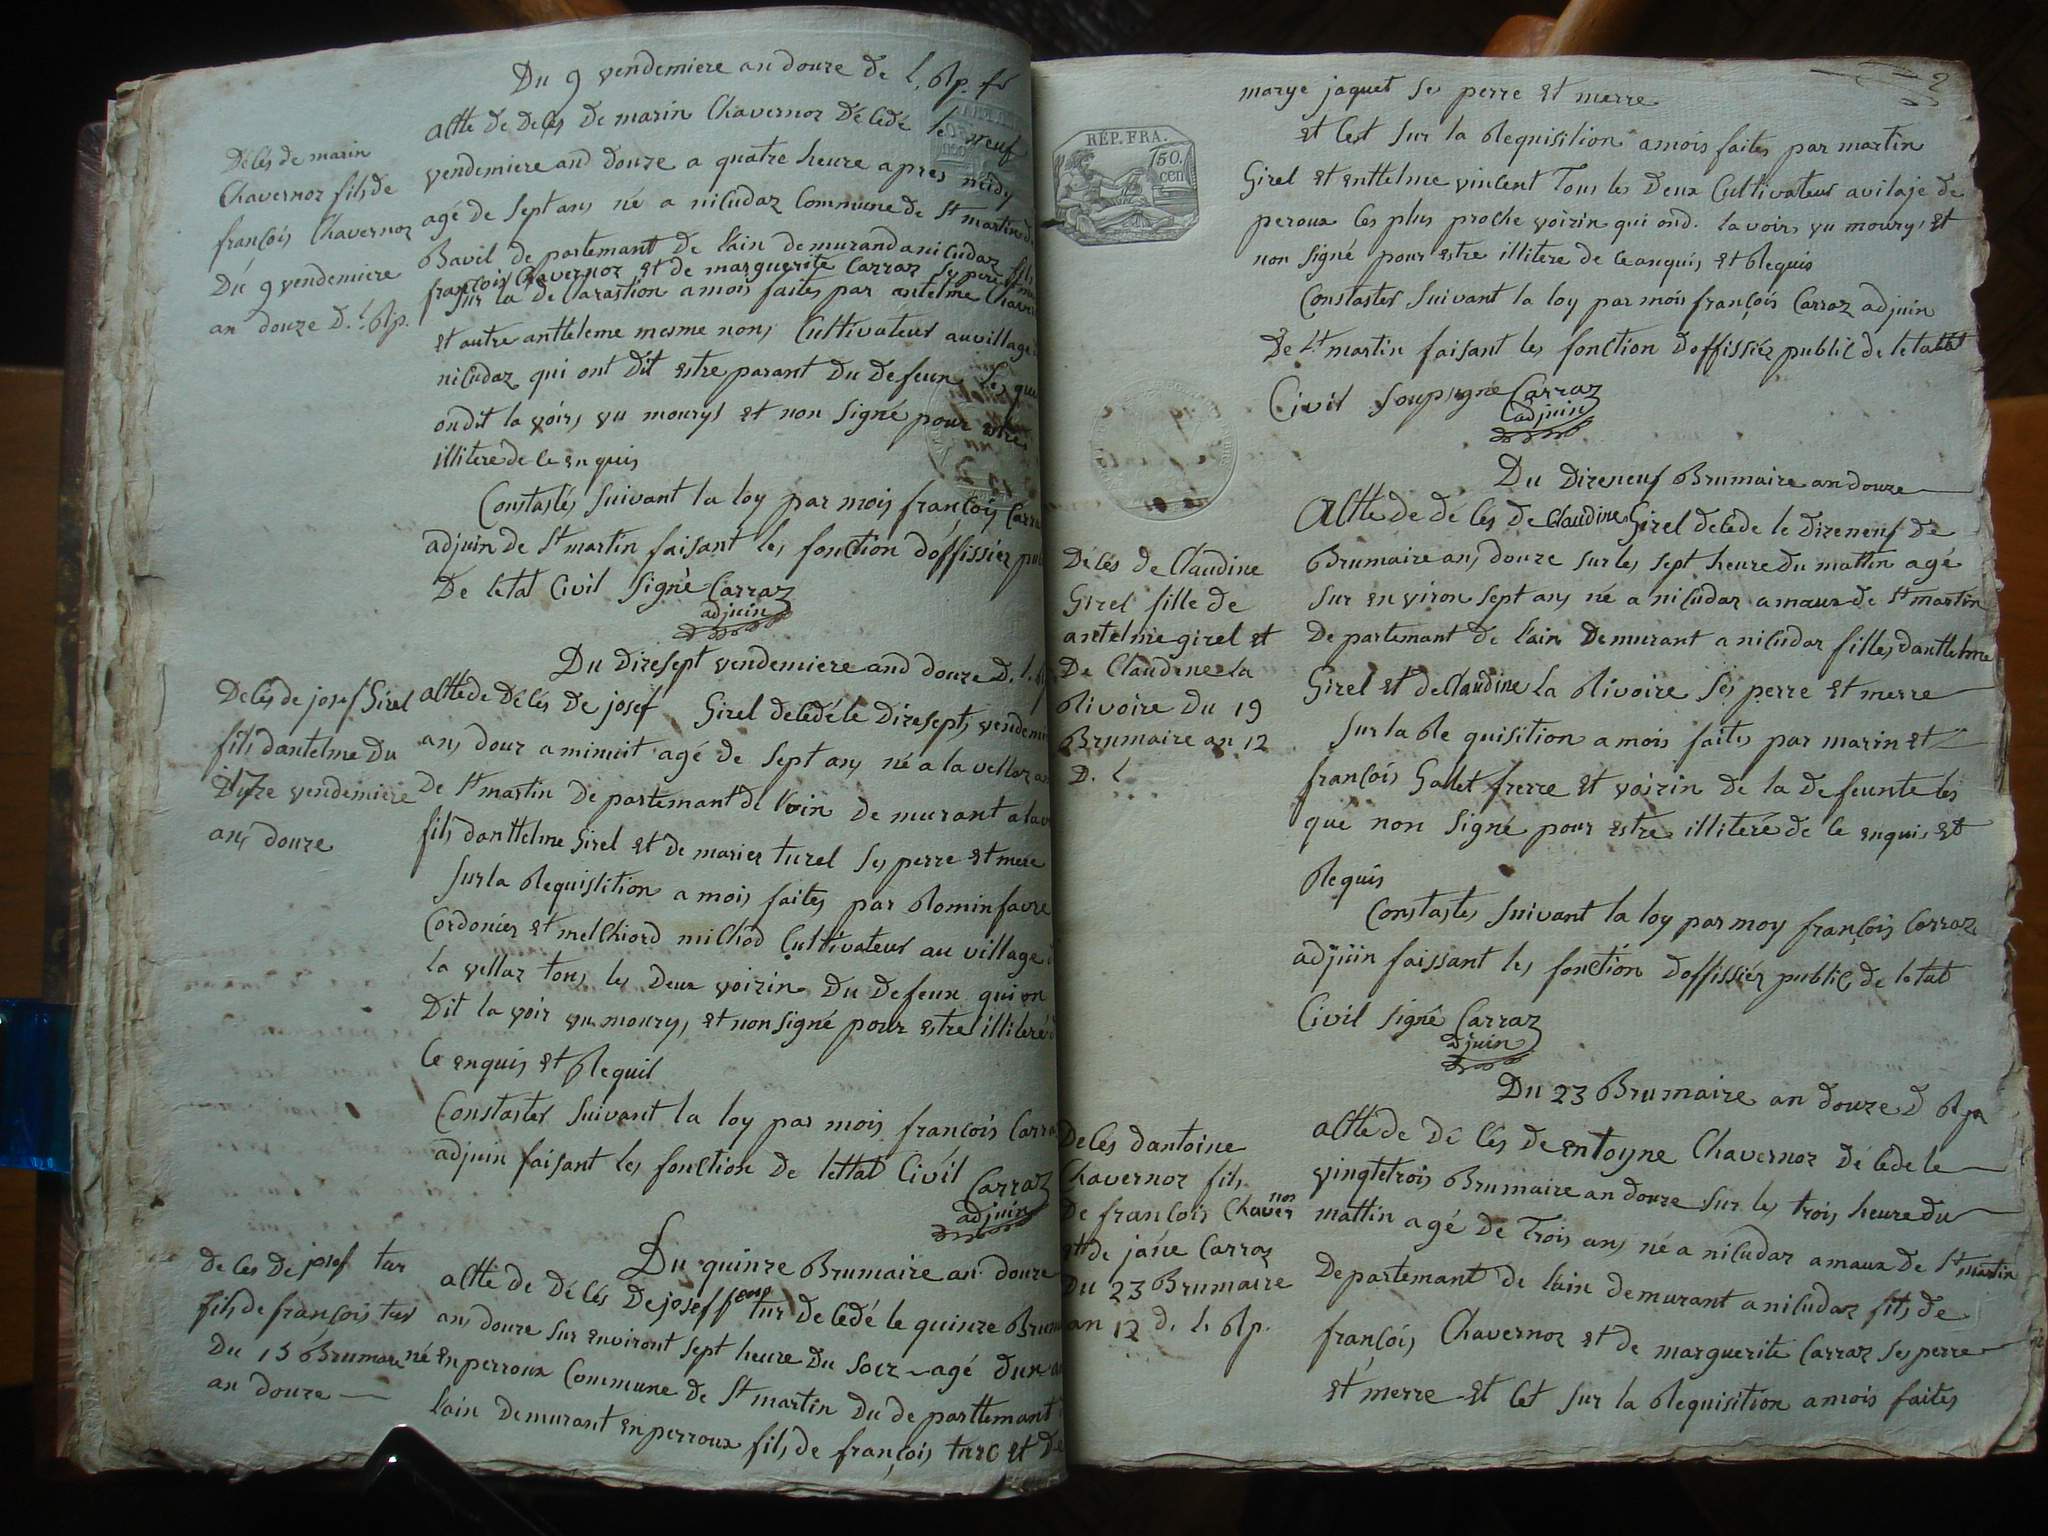 Du 9 vendemiere an douze de l. Rp. fr
Décés de marin
Chavernoz fils de
françois Chavernoz
Du 9 vendemiere
an douze D. l. Rp.
actte de decés de marin Chavernoz décédé le neuf
vendemiere and douze a quatre heure apres midy
agé de sept ans né a niludaz Commune de St martin de
Bavil departemant de lain demurand a niludaz fils
françois Chavernoz et de marguerite Carraz ses pere et
sur la declarastion a mois faites par antelme
et autre antteleme mesme noms Cultivateur au village
niludaz qui ont dit estre parant du defeun les que
ondit lavoirs vu mourys et non signé pour estre
illitere de ce enquis
Constastés suivant la loy par mois françois Carraz
adjuin de St martin faisant les fonction doffissier
De letat Civil signé Carraz
adjuin
Du dixesept vendemiere and douze D. l.
Decés de josef Girel
fils dantelme du
vendemiere
ans douze
acttede décés de josef Girel decedé le dixesepts
ans douz a minuit agé de sept ans né a la vellaz
de St martin departemant de lain demurant a la
fils danttelme Girel et de marier turel ses perre et mere
sur la Requisitition a mois faites par Romin favre
Cordonier et melchiord michod Cultivateur au village
la vellaz tous les deux voizin du defeun qui on
dit lavoir vu mourys et non signé pour estre illiteré
Ce enquis et Requil
Constaster suivant la loy par mois françois
adjuin faisant les fonction de lettat Civil Carraz
adjuin
Du quinze Brumaire an douze
de ces de josef tur
fils de françois tur
Du 15 Brumare
an douze
actte de décés de joseff tur decedé le quinze
ans douze sur environt sept heure du soir agé dun
né en perroux Commune de St martin du departtemant
lain demurant en perroux fils de françois turc et de
2
marye jaquet ses perre et merre
et cest sur la Requisition a mois faites par martin
Girel et enttelme vincent tous les deux Cultivateur avilaje de
peroux les plus proche voizin qui ond. lavoirs vu mourys et
non signé pour estre illitere de ceanquis et Requis
Constaster suivant la loy par mois françois Carraz adjuin
De St martin faisant les fonction doffissier public de letat
Civil soupsigné Carraz
adjuin
RÉP. FRA.
50.
cen
Du Dixeneuf Brumaire an douze
Décés de Claudine
Girel fille de
antelme girel et
De Claudine La
Rivoire Du 19
Brumaire an 12
D. l
Actte de décés de Claudine Girel decede le dixeneuf de
Brumaire ans douze sur les sept heure du mattin agé
sur environ sept ans né a niludaz amaux de St martin
departemant de lain demurant a niludaz filles danttelme
Girel et de Claudine La Rivoire ses perre et merre
sur la Requisition a mois faites par marin et
françois Galet frerre et voizin de la defeunte les
que non signé pour estre illiteré de ce enquis et
Requis
Constastes suivant la loy par moy françois Carraz
adjuin faissant les fonction doffissier public de letat
Civil signé Carraz
adjuin
Du 23 Brumaire an douze D Rp
Decés dantoine
Chavernoz fils
De françois Chavernoz
et de jane Carraz
Du 23 Brumaire
an 12 d. l. Rp.
actte de décés de entoyne Chavernoz décede le
vingtetrois Brumaire an douze sur les trois heure du
mattin agé de trois ans né a niludaz amaux de St martin
Departemant de lain demurant a niludaz fils de
françois Chavernoz et de marguerite Carraz ses perre
et merre et cet sur la Requisition a mois faites